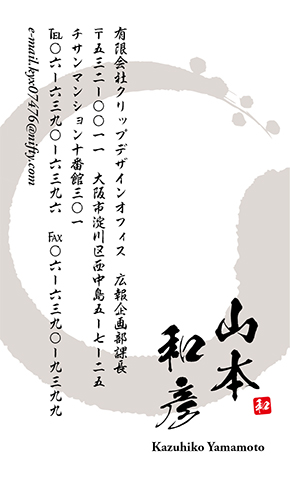 有限会社クリップデザインオフィス　広報企画部課長
〒五三二ー〇〇一一　大阪市淀川区西中島五ー七ー二五
チサンマンション十番館三〇一
℡〇六ー六三九〇ー六三九六　FAX〇六ー六三九〇ー九三九九
e-mail.kyx07476@nifty.com
山本
和彦
和
Kazuhiko Yamamoto